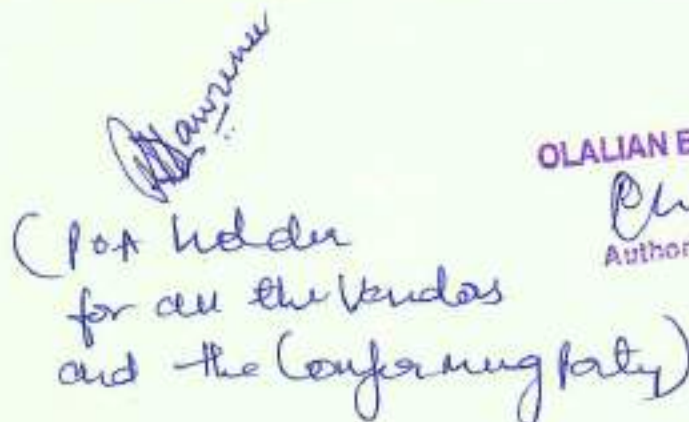 Lawrence
OLALIAN E
Author
(POA holder
for all the Vendors
and the Confirming Party)